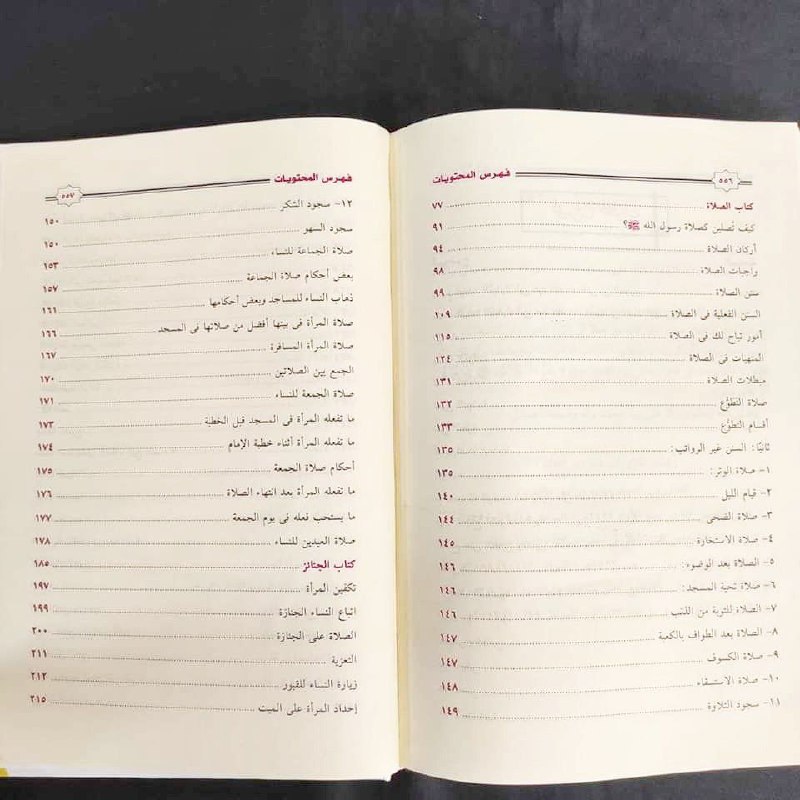 ٥٥٦ فهرس المحتويات
كتاب الصلاة ٧٧
كيف تُصلين كصلاة رسول الله ﷺ؟ ٩١
أركان الصلاة ٩٤
واجبات الصلاة ٩٨
سنن الصلاة ٩٩
السنن الفعلية فى الصلاة ١٠٩
أمور تباح لك فى الصلاة ١١٥
المنهيات فى الصلاة ١٢٤
مبطلات الصلاة ١٣١
صلاة التطوُّع ١٣٢
أقسام التطوُّع ١٣٣
ثانيًا: السنن غير الرواتب: ١٣٥
١- صلاة الوتر: ١٣٥
٢- قيام الليل ١٤٠
٣- صلاة الضحى ١٤٤
٤- صلاة الاستخارة ١٤٥
٥- الصلاة بعد الوضوء: ١٤٦
٦- صلاة تحية المسجد: ١٤٦
٧- الصلاة للتوبة من الذنب ١٤٦
٨- الصلاة بعد الطواف بالكعبة ١٤٧
٩- صلاة الكسوف ١٤٧
١٠- صلاة الاستسقاء ١٤٨
١١- سجود التلاوة ١٤٩
فهرس المحتويات ٥٥٧
١٢- سجود الشكر ١٥٠
سجود السهو ١٥٠
صلاة الجماعة للنساء ١٥٣
بعض أحكام صلاة الجماعة ١٥٧
ذهاب النساء للمساجد وبعض أحكامها ١٦١
صلاة المرأة فى بيتها أفضل من صلاتها فى المسجد ١٦٦
صلاة المرأة المسافرة ١٦٧
الجمع بين الصلاتين ١٧٠
صلاة الجمعة للنساء ١٧١
ما تفعله المرأة فى المسجد قبل الخطبة ١٧٣
ما تفعله المرأة أثناء خطبة الإمام ١٧٤
أحكام صلاة الجمعة ١٧٥
ما تفعله المرأة بعد انتهاء الصلاة ١٧٦
ما يستحب فعله فى يوم الجمعة ١٧٧
صلاة العيدين للنساء ١٧٨
كتاب الجنائز ١٨٥
تكفين المرأة ١٩٧
اتباع النساء الجنازة ١٩٩
الصلاة على الجنازة ٢٠٠
التعزية ٢١١
زيارة النساء للقبور ٢١٢
إحداد المرأة على الميت ٢١٥